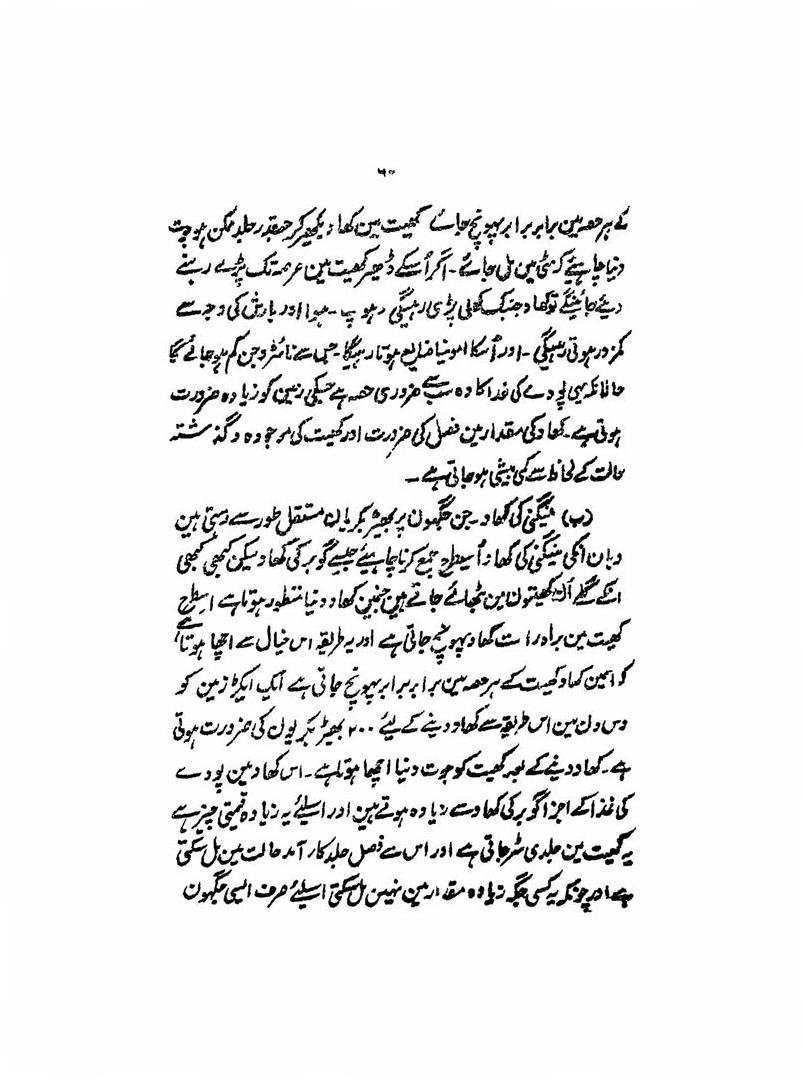 ۶۰
کے ہر حصہ مین برابر برابر پہونچ جائے کھیت مین کھاد بکھیر کر جسقدر جلد ممکن ہو جوت
دنیا چاہئیے کہ مٹی مین مل جائے۔ اگر اُسکے ڈھیر کھیت مین عرصہ تک پڑے رہنے
دیئے جائینگے تو کھاد جبتک کھلی پڑی رہیگی دہوپ۔ ہوا اور بارش کی وجہ سے
کمزور ہوتی رہیگی۔ اور اُسکا امونیا ضایع ہوتا رہیگا۔ جس سے نائٹروجن کم ہو جائے گا
حالانکہ یہی پودے کی غذا کا وہ سب سے ضروری حصہ ہے جسکی زمین کو زیادہ ضرورت
ہوتی ہے۔ کھاد کی مقدار مین فصل کی ضرورت اور کھیت کی موجودہ و گذشتہ
حالت کے لحاظ سے کمی بیشی ہو جاتی ہے۔
(ب) مینگنی کی کھاد۔ جن جگہون پر بھیڑ بکریان مستقل طور سے رہتی ہین
وہان انکی مینگنی کی کھاد اُسیطرح جمع کرنا چاہیئے جیسے گوبر کی کھاد لیکن کبھی کبھی
انکے گلے اُن کھیتون مین بٹھائے جاتے ہین جنمین کھاد دنیا منظور ہوتا ہے اسطرح
کھیت مین براہ راست کھاد پہونچ جاتی ہے اور یہ طریقہ اس خیال سے اچھا ہوتا ہے
کہ اسمین کھاد کھیت کے ہر حصہ مین برابر برابر پہونچ جاتی ہے ایک ایکڑ زمین کو
دس دن مین اس طریقہ سے کھاد دینے کے لیئے ۲۰۰ بھیڑ بکریون کی ضرورت ہوتی
ہے۔ کھاد دینے کے بعد کھیت کو جوت دنیا اچھا ہوتا ہے۔ اس کھاد مین پودے
کی غذا کے اجزا گوبر کی کھاد سے زیادہ ہوتے ہین اور اسلیئے یہ زیادہ قیمتی چیز ہے
یہ کھیت مین جلدی سڑ جاتی ہے اور اس سے فصل جلد کار آمد حالت مین مل سکتی
ہے اور چونکہ یہ کسی جگہ زیادہ مقدار مین نہین مل سکتی اسلیئے صرف ایسی جگہون